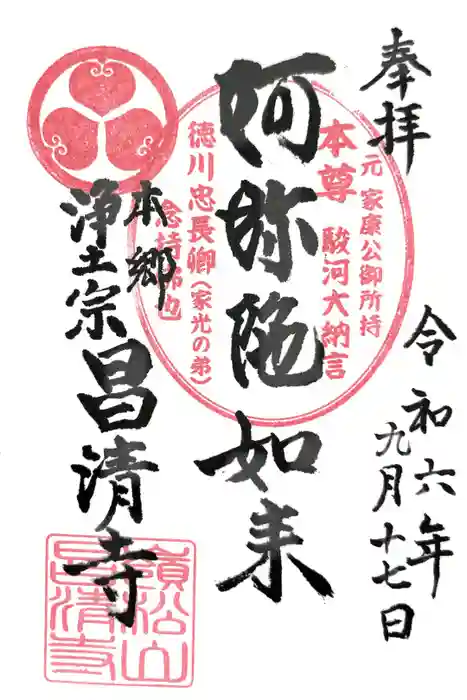 奉拝
令和六年
九月十七日
元 家康公御所持
本尊 駿河大納言
阿弥陀如来
徳川忠長卿（家光の弟）
念持佛也
本郷
浄土宗 昌清寺
嶺松山
昌清寺